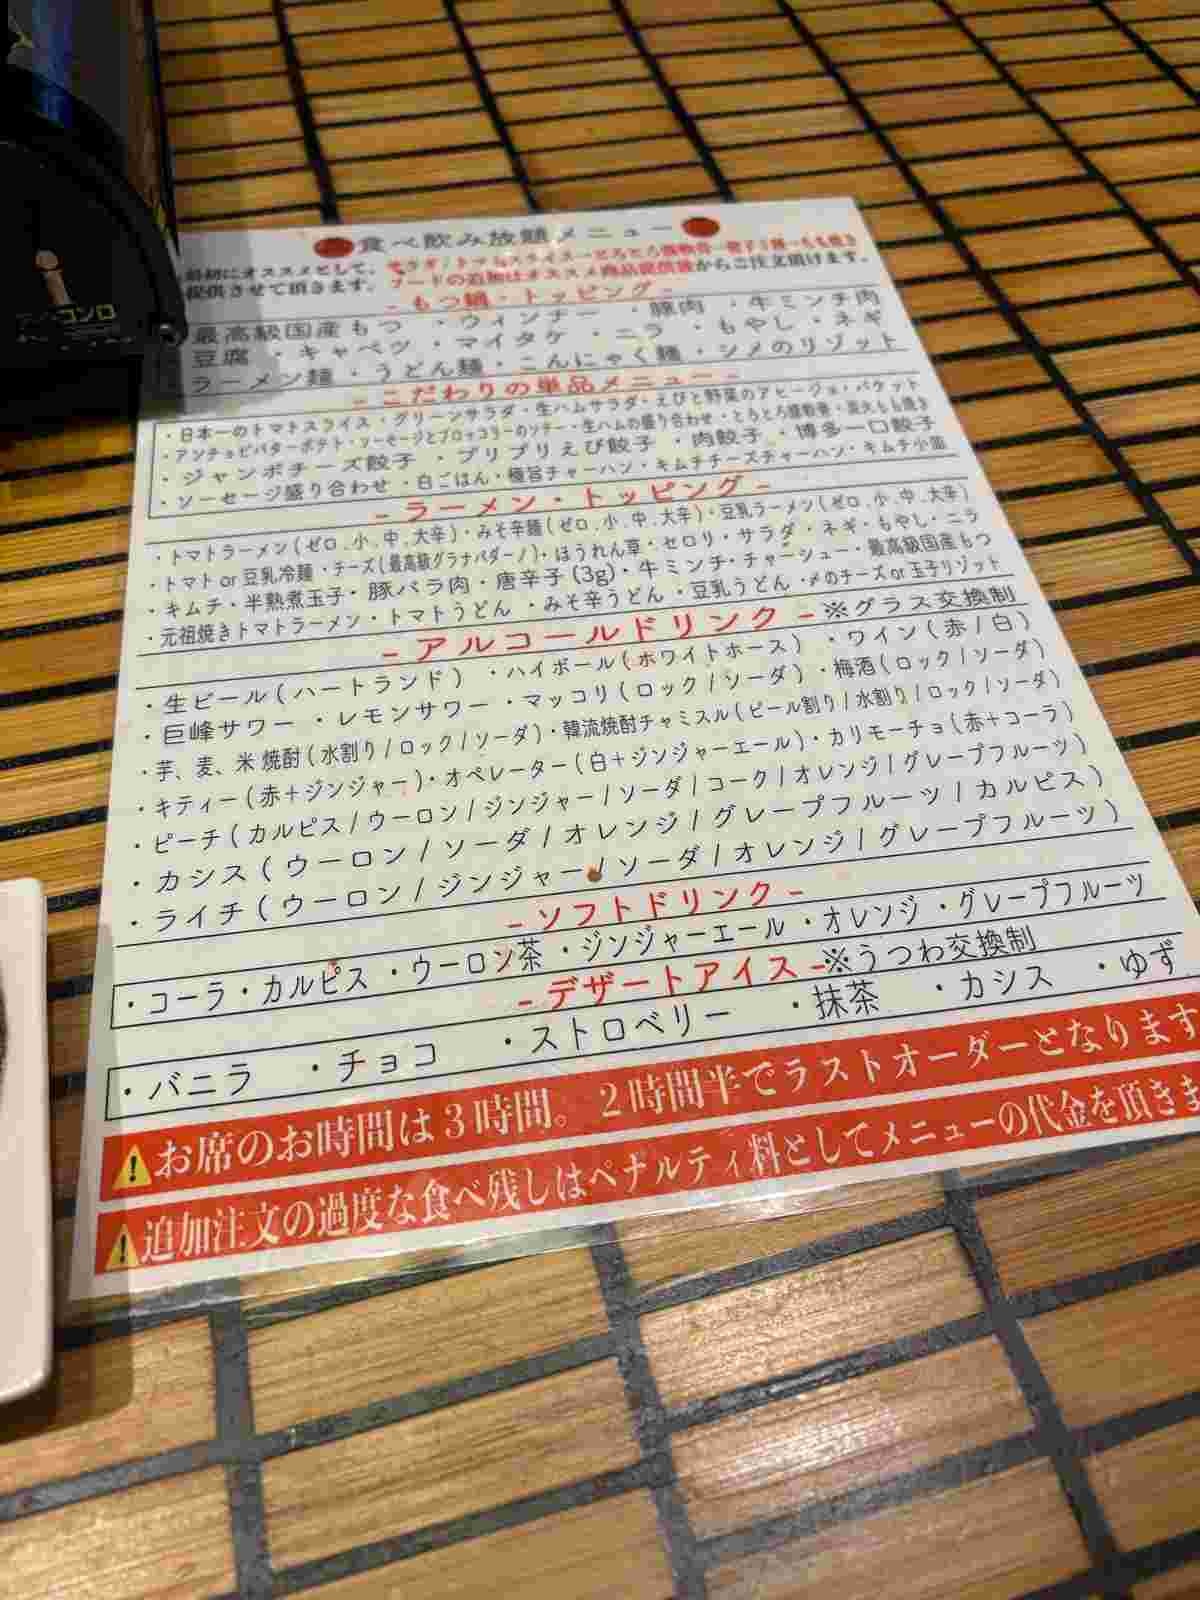 食べ飲み放題メニュー
最初にオススメとして、サラダ/トマトスライス→とろとろ豚軟骨→餃子3種→もも焼き
提供させて頂きます。フードの追加はオススメ商品提供後からご注文頂けます。
- もつ鍋・トッピング -
・最高級国産もつ ・ウィンナー ・豚肉 ・牛ミンチ肉
・豆腐 ・キャベツ ・マイタケ ・ニラ ・もやし ・ネギ
・ラーメン麺 ・うどん麺 ・こんにゃく麺 ・シメのリゾット
- こだわりの単品メニュー -
・日本一のトマトスライス・グリーンサラダ・生ハムサラダ・えびと野菜のアヒージョ・バケット
・アンチョビバターポテト・ソーセージとブロッコリーのソテー・生ハムの盛り合わせ・とろとろ豚軟骨・炭火もも焼き
・ジャンボチーズ餃子 ・プリプリえび餃子 ・肉餃子 ・博多一口餃子
・ソーセージ盛り合わせ ・白ごはん・極旨チャーハン・キムチチーズチャーハン・キムチ小皿
- ラーメン・トッピング -
・トマトラーメン(ゼロ.小.中.大辛)・みそ辛麺(ゼロ.小.中.大辛)・豆乳ラーメン(ゼロ.小.中.大辛)
・トマトor豆乳冷麺・チーズ(最高級グラナパダーノ)・ほうれん草・セロリ・サラダ・ネギ・もやし・ニラ
・キムチ・半熟煮玉子・豚バラ肉・唐辛子(3g)・牛ミンチ・チャーシュー・最高級国産もつ
・元祖焼きトマトラーメン・トマトうどん ・みそ辛うどん ・豆乳うどん ・〆のチーズor玉子リゾット
- アルコールドリンク - ※グラス交換制
・生ビール(ハートランド) ・ハイボール(ホワイトホース) ・ワイン(赤/白)
・巨峰サワー ・レモンサワー ・マッコリ(ロック/ソーダ) ・梅酒(ロック/ソーダ)
・芋、麦、米 焼酎(水割り/ロック/ソーダ)・韓流焼酎チャミスル(ビール割り/水割り/ロック/ソーダ)
・キティー(赤＋ジンジャー)・オペレーター(白＋ジンジャーエール)・カリモーチョ(赤＋コーラ)
・ピーチ(カルピス/ウーロン/ジンジャー/ソーダ/コーク/オレンジ/グレープフルーツ)
・カシス(ウーロン/ソーダ/オレンジ/グレープフルーツ/カルピス)
・ライチ(ウーロン/ジンジャー/ソーダ/オレンジ/グレープフルーツ)
- ソフトドリンク -
・コーラ・カルピス ・ウーロン茶 ・ジンジャーエール ・オレンジ ・グレープフルーツ
- デザートアイス - ※うつわ交換制
・バニラ ・チョコ ・ストロベリー ・抹茶 ・カシス ・ゆず
お席のお時間は3時間。2時間半でラストオーダーとなります
追加注文の過度な食べ残しはペナルティ料としてメニューの代金を頂きま